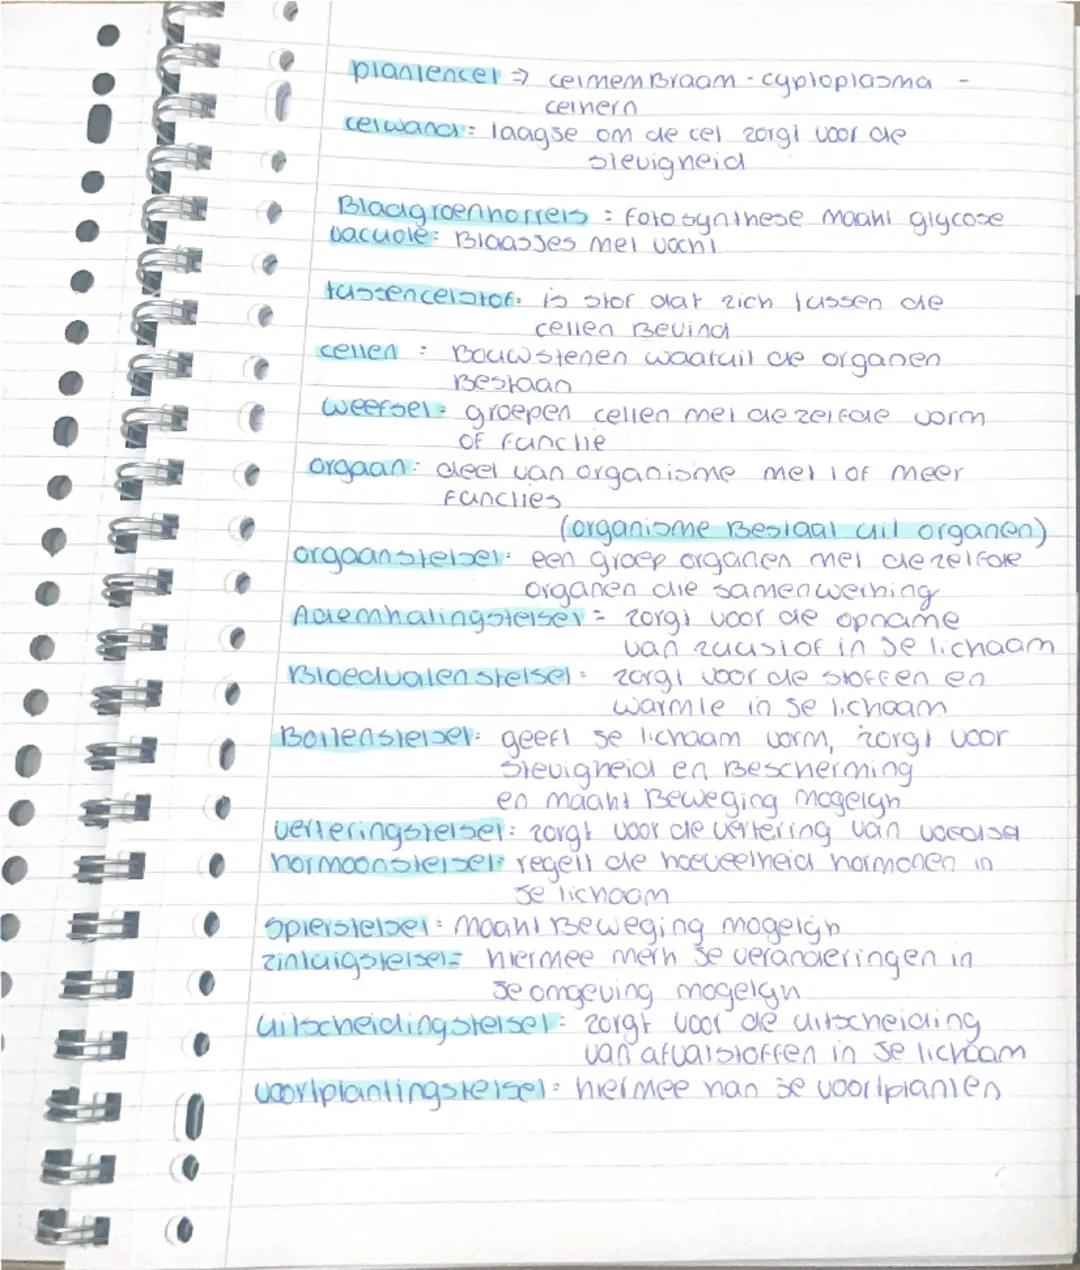 plantencel => celmembraam - cyploplasma -
celkern
celwand: laagje om de cel zorgt voor de
stevigheid
Bladgroenkorrels : fotosynthese maakt glycose
vacuole: Blaasjes met vocht
tussencelstof: is stof dat zich tussen de
cellen Bevind
cellen : Bouwstenen waaruit de organen
Bestaan
weefsel: groepen cellen met dezelfde vorm
of functie
orgaan: deel van organisme met 1 of meer
functies
(organisme Bestaat uit organen)
orgaanstelsel: een groep organen met dezelfde
organen die samenwerking
Ademhalingstelsel = zorgt voor de opname
van zuustof in je lichaam
Bloedvatenstelsel: zorgt voor de stoffen en
warmte in je lichaam
Bottenstelsel: geeft je lichaam vorm, zorgt voor
stevigheid en Bescherming
en maakt Beweging mogelijk
verteringstelsel: zorgt voor de vertering van voedsel
hormoonstelsel: regelt de hoeveelheid hormonen in
je lichaam
spierstelsel: maakt Beweging mogelijk
zintuigstelsel= hiermee merk je veranderingen in
je omgeving mogelijk
uitscheidingstelsel: zorgt voor de uitscheiding
van afvalstoffen in je lichaam
voortplantingstelsel: hiermee kan je voortplanten